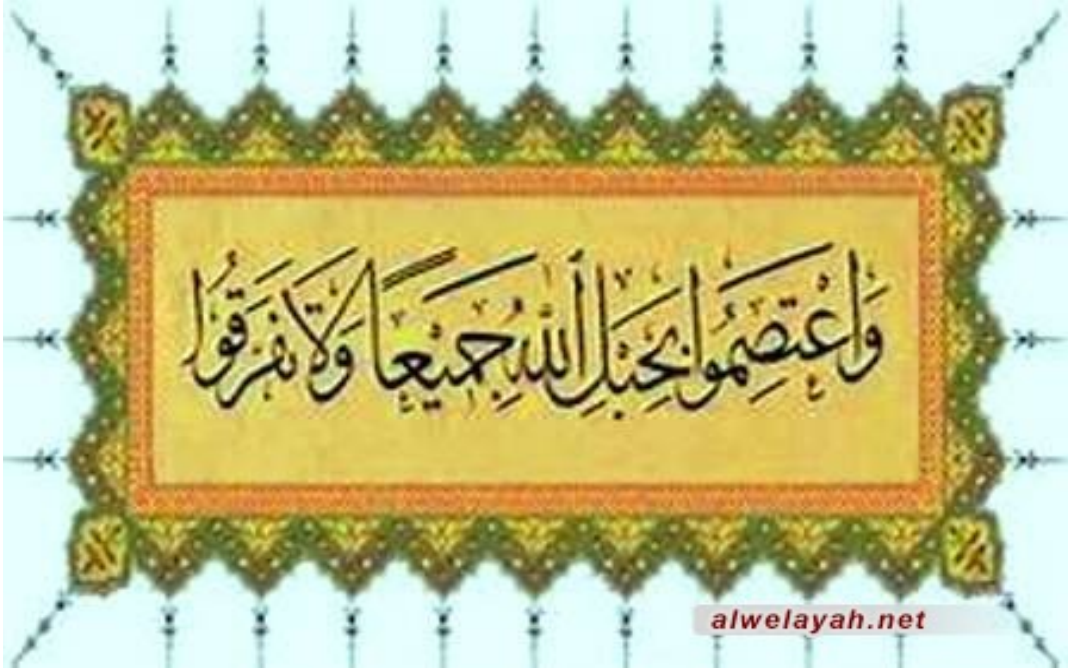 وَاعْتَصِمُوا بِحَبْلِ اللَّهِ جَمِيعًا وَلَا تَفَرَّقُوا
alwelayah.net